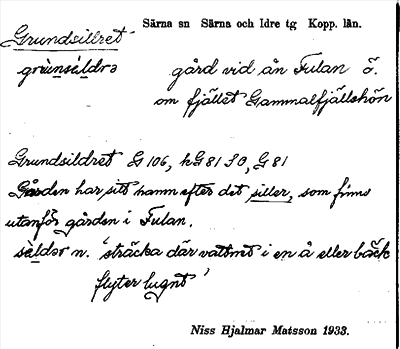 Särna sn Särna och Idre tg Kopp. län.
Grundsillret
grùnsèldrə
gård vid ån Fulan ö.
om fjället Gammalfjällshön
Grundsildret G 106, kG 81 SO, G 81
Gården har sitt namn efter det siller, som finns
utanför gården i Fulan.
sèldər n. 'sträcka där vattnet i en å eller bäck
flyter lugnt'
Niss Hjalmar Matsson 1933.